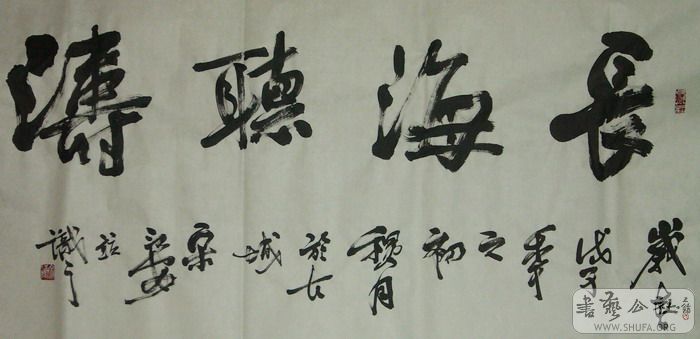 長海聽濤
歲在戊子年之初月於古城識之
書藝公社
WWW.SHUFA.ORG